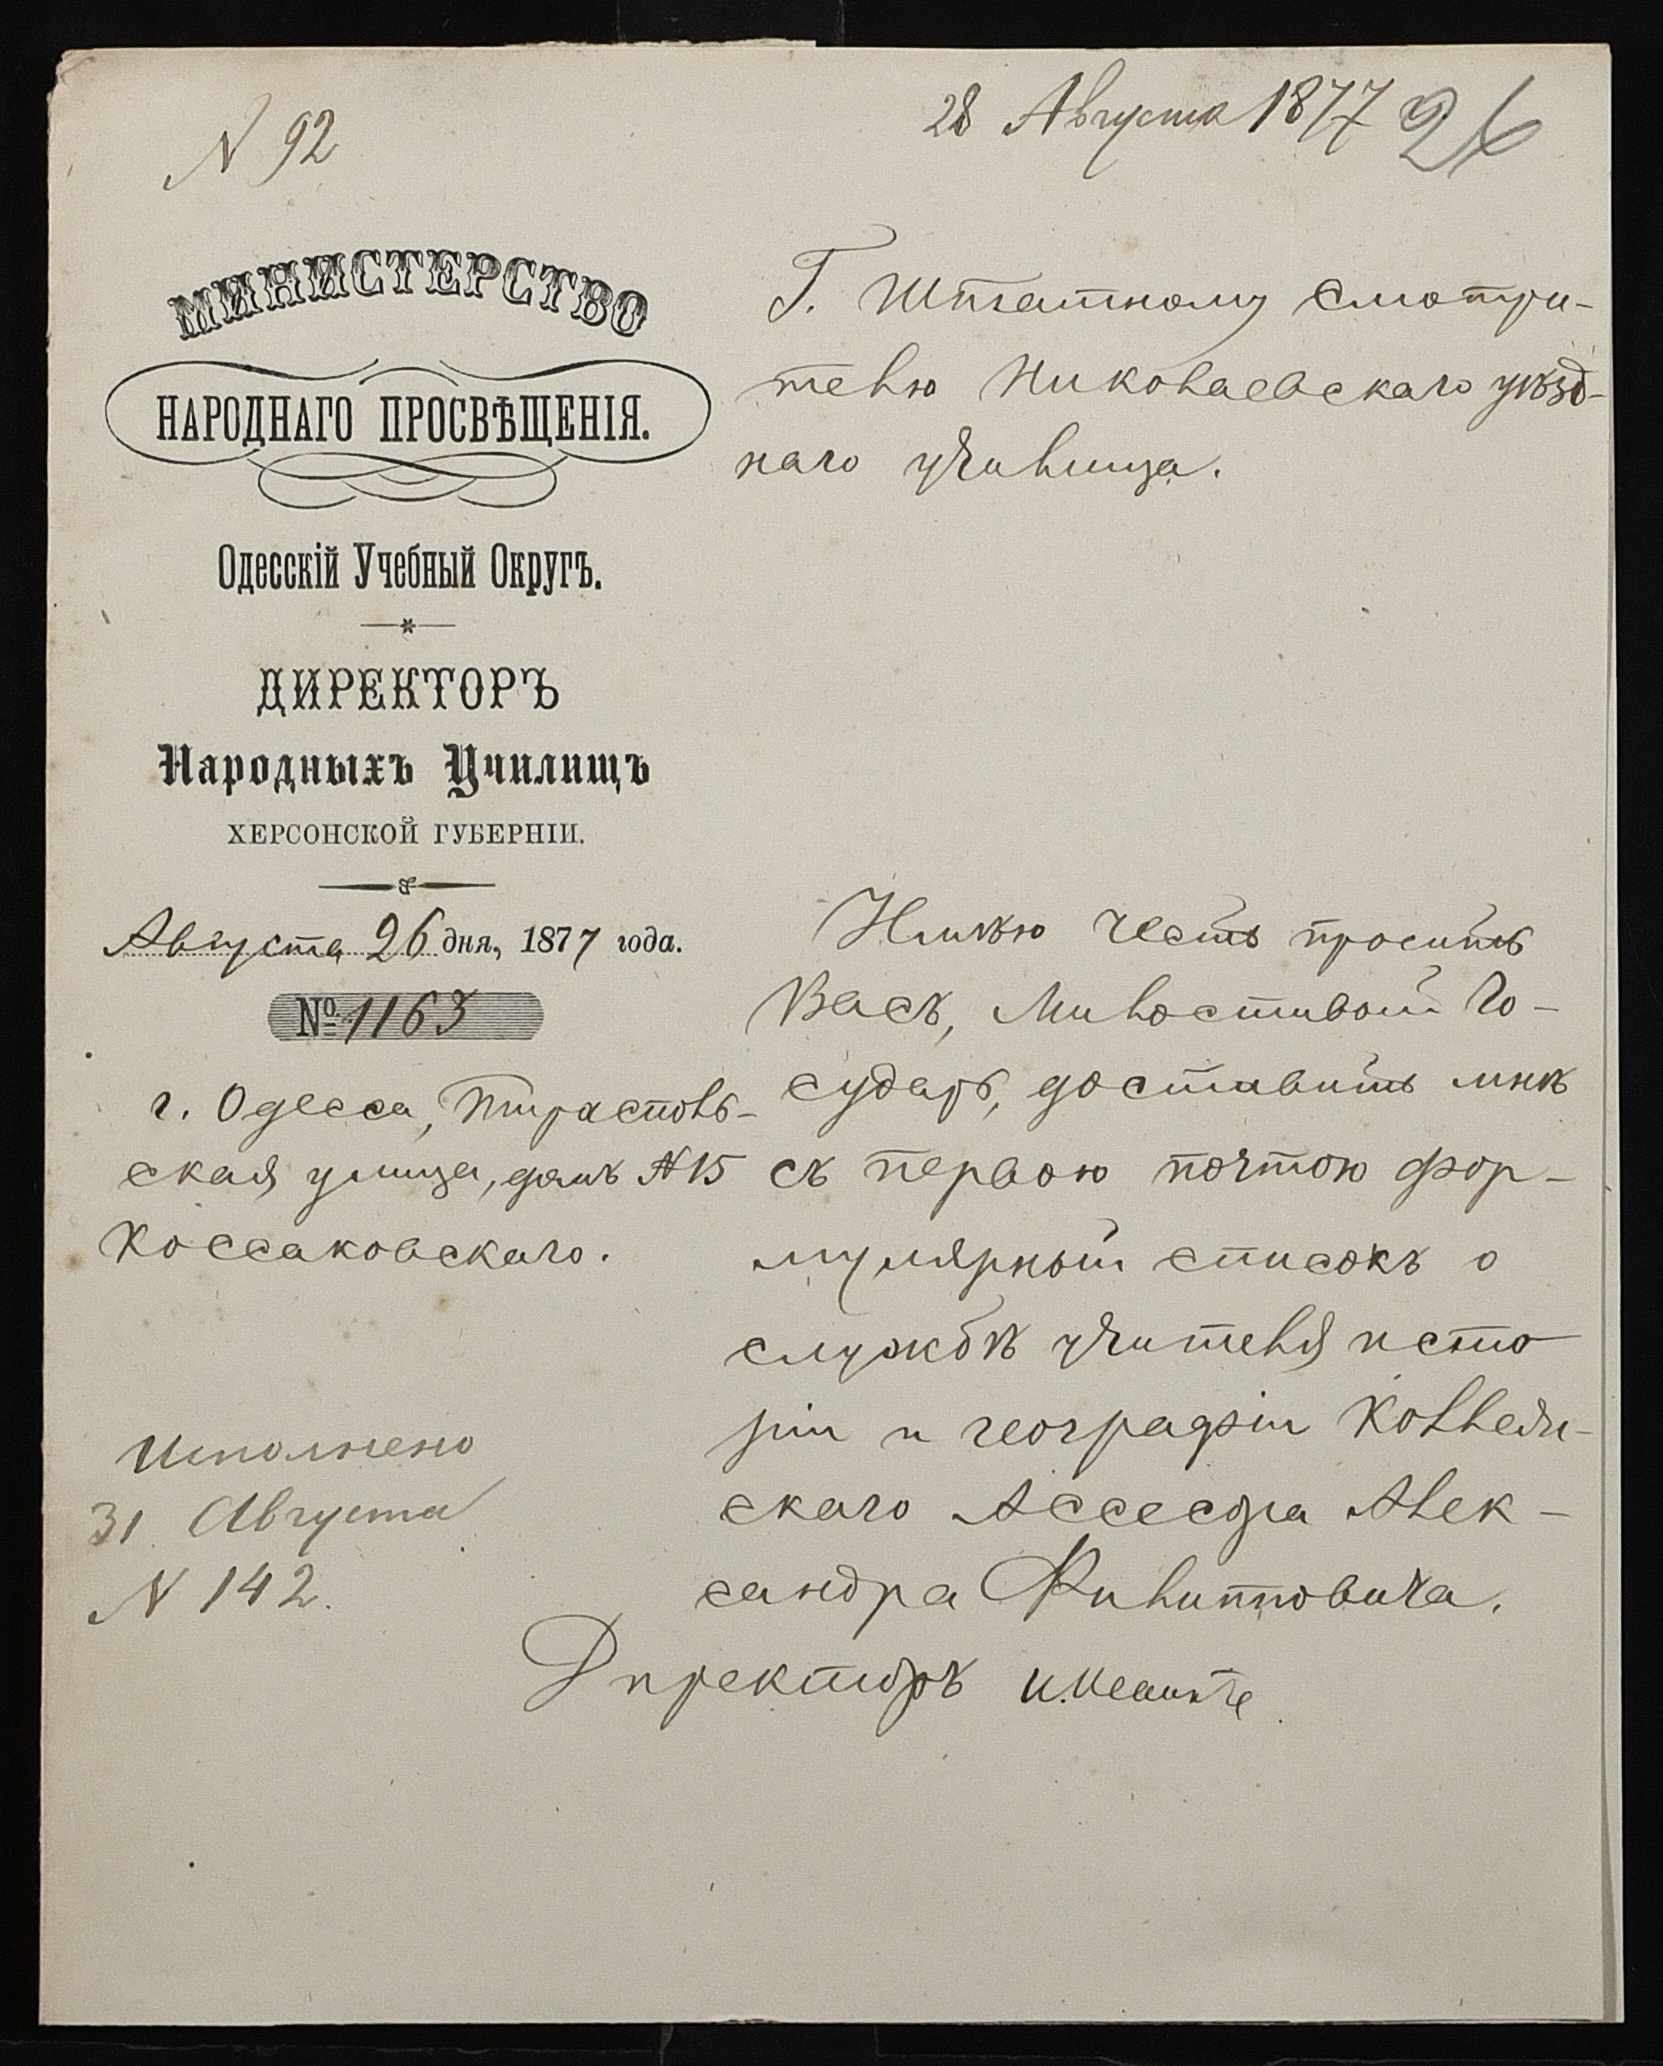 N 92
28 Августа 1877
26
МИНИСТЕРСТВО
НАРОДНАГО ПРОСВѢЩЕНІЯ.
Одесскій Учебный Округъ.
ДИРЕКТОРЪ
Народныхъ Училищъ
ХЕРСОНСКОЙ ГУБЕРНІИ.
Августа 26 дня, 1877 года.
№ 1163
г. Одесса, Тирасполь-
ская улица, домъ N 15
Коссаковскаго.
Исполнено
31 Августа
N 142.
Г. Штатному смотри-
телю Николаевскаго уѣзд-
наго училища.
Имѣю честь просить
Васъ, Милостивый Го-
сударь, доставить мнѣ
съ первою почтою фор-
мулярный списокъ о
службѣ учителя исто
ріи и географіи Коллежи-
скаго Ассесора Алек-
сандра Филипповича.
Директоръ И.